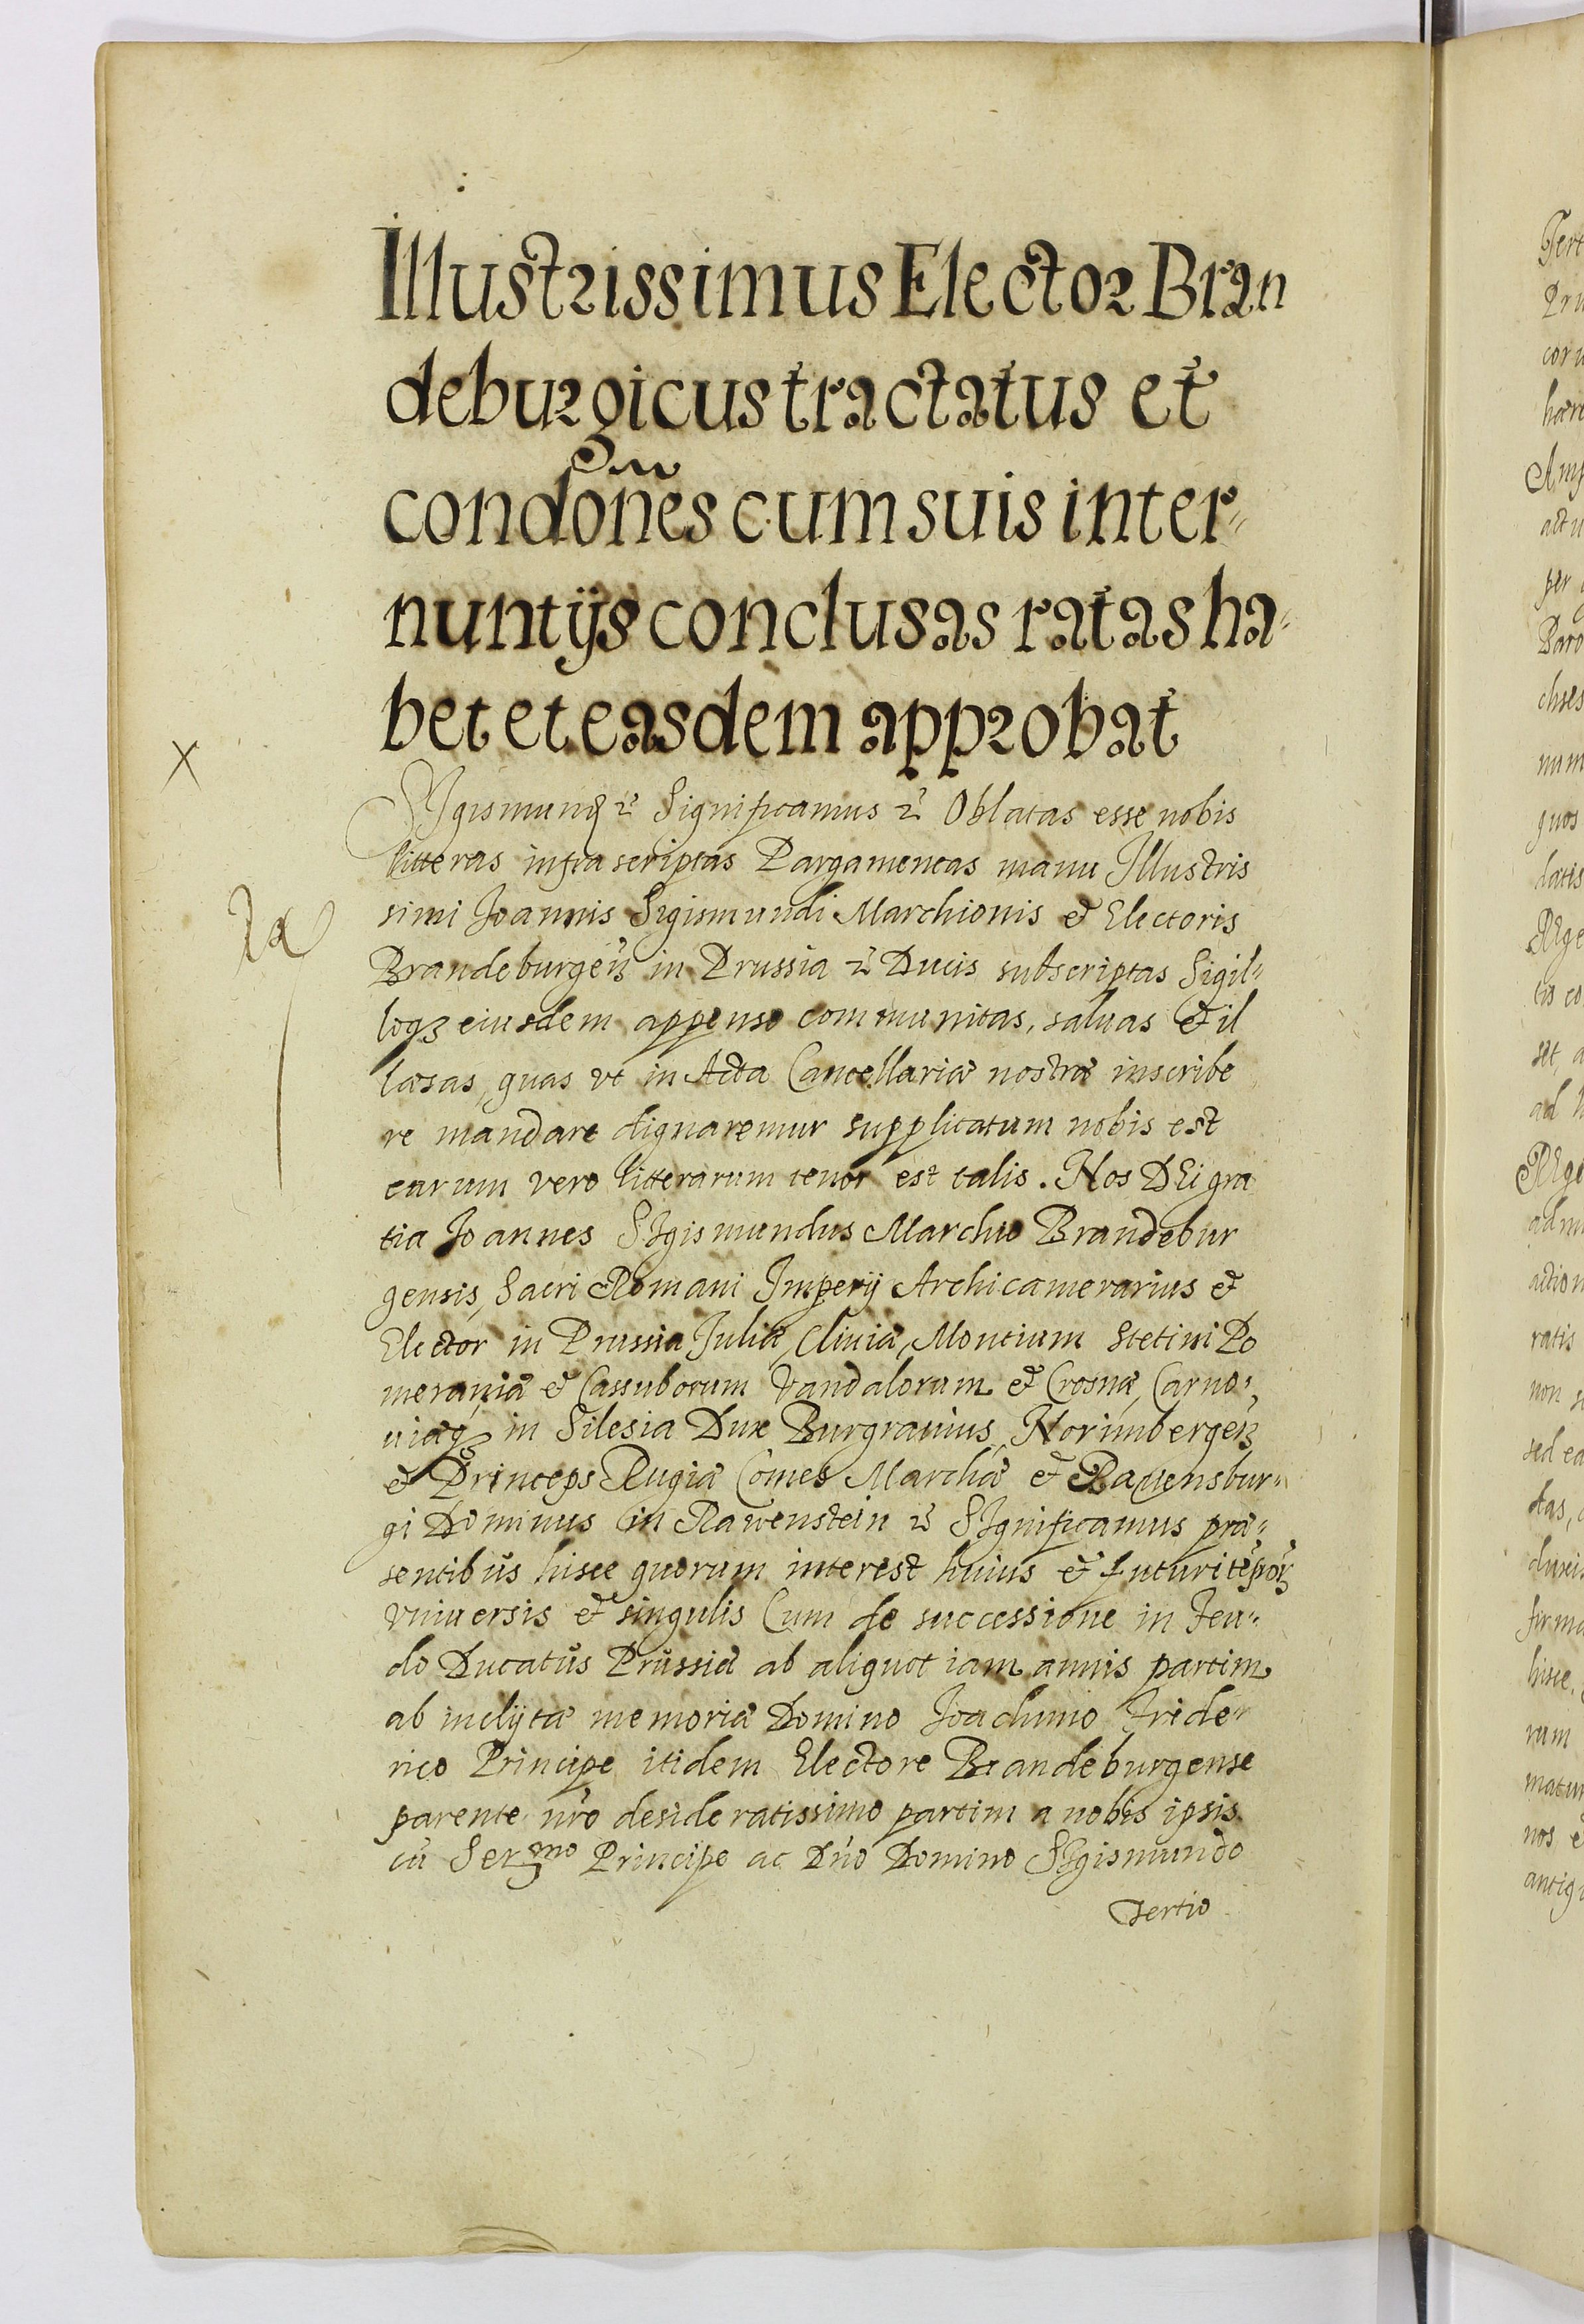 Illustrissimus Elector Bran
deburgicus tractatus et
condoñes cum suis inter-
nuntijs conclusas ratas ha-
bet et easdem approbat
X
SIgismund⁹ ꝛc̃ Significamus ꝛc̃ Oblatas esse nobis
litteras infra scriptas Pargameneas manu Illustris
simi Joannis Sigismundi Marchionis et Electoris
Brandeburgeñ in Prussia ꝛc̃ Ducis subscriptas Sigil-
loqꝫ eiusdem appenso communitas, saluas et il
læsas, quas vt in Acta Cancellariæ nostræ inscribe
re mandare dignaremur supplicatum nobis est
earum vero litterarum tenor est talis. Nos DEi gra
tia Joannes SIgismundus Marchio Brandebur
gensis, Sacri Romani Imperij Archicamerarius et
Elector in Prussia Juliæ, Cliuiæ, Montium Stetini Po
meraniæ et Cassuborum Vandalorum et Crosnæ, Carno-
uiæqꝫ in Silesia Dux Burgrauius Norimbergeñ
et Princeps Rugiæ Comes Marchæ et Rauensbur-
gi Dominus in Rawenstein ꝛc̃ SIgnificamus præ-
sentibus hisce quorum interest huius et futuri tẽporꝭ
vniuersis et singulis Cum de successione in feu-
do Ducatus Prussiæ ab aliquot iam annis partim
ab inclijtæ memoriæ Domino Joachimo Fride-
rico Principe itidem Electore Brandeburgense
parente nr̃o desideratissimo partim a nobis ipsis
cũ Serᵐᵒ Principe ac Dño Domino SIgismundo
Tertio